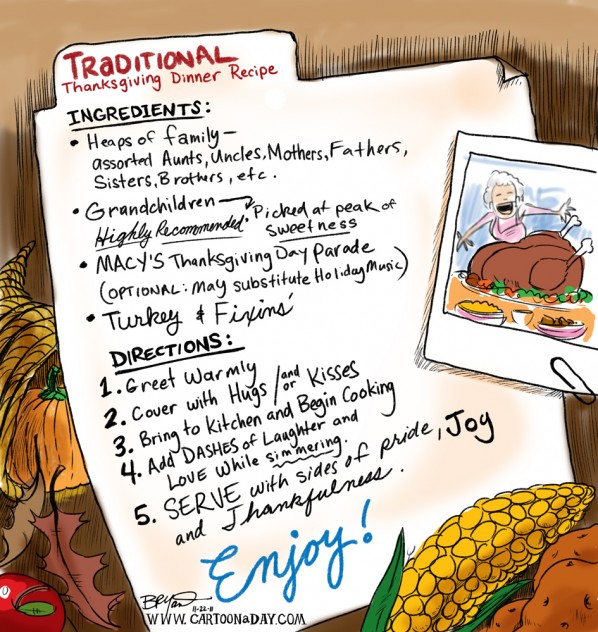 TRADITIONAL
Thanksgiving Dinner Recipe
INGREDIENTS:
• Heaps of family –
assorted Aunts, Uncles, Mothers, Fathers,
Sisters, Brothers, etc.
• Grandchildren → Picked at peak of
Highly Recommended. sweetness
• MACY'S Thanksgiving Day Parade
(OPTIONAL: may substitute Holiday Music)
• Turkey & Fixins'
DIRECTIONS:
1. Greet Warmly
2. Cover with Hugs and/or Kisses
3. Bring to Kitchen and Begin Cooking
4. Add DASHES of Laughter and
LOVE while simmering.
5. SERVE with sides of pride, Joy
and Thankfulness.
Enjoy!
11-22-11
WWW.CARTOONADAY.COM